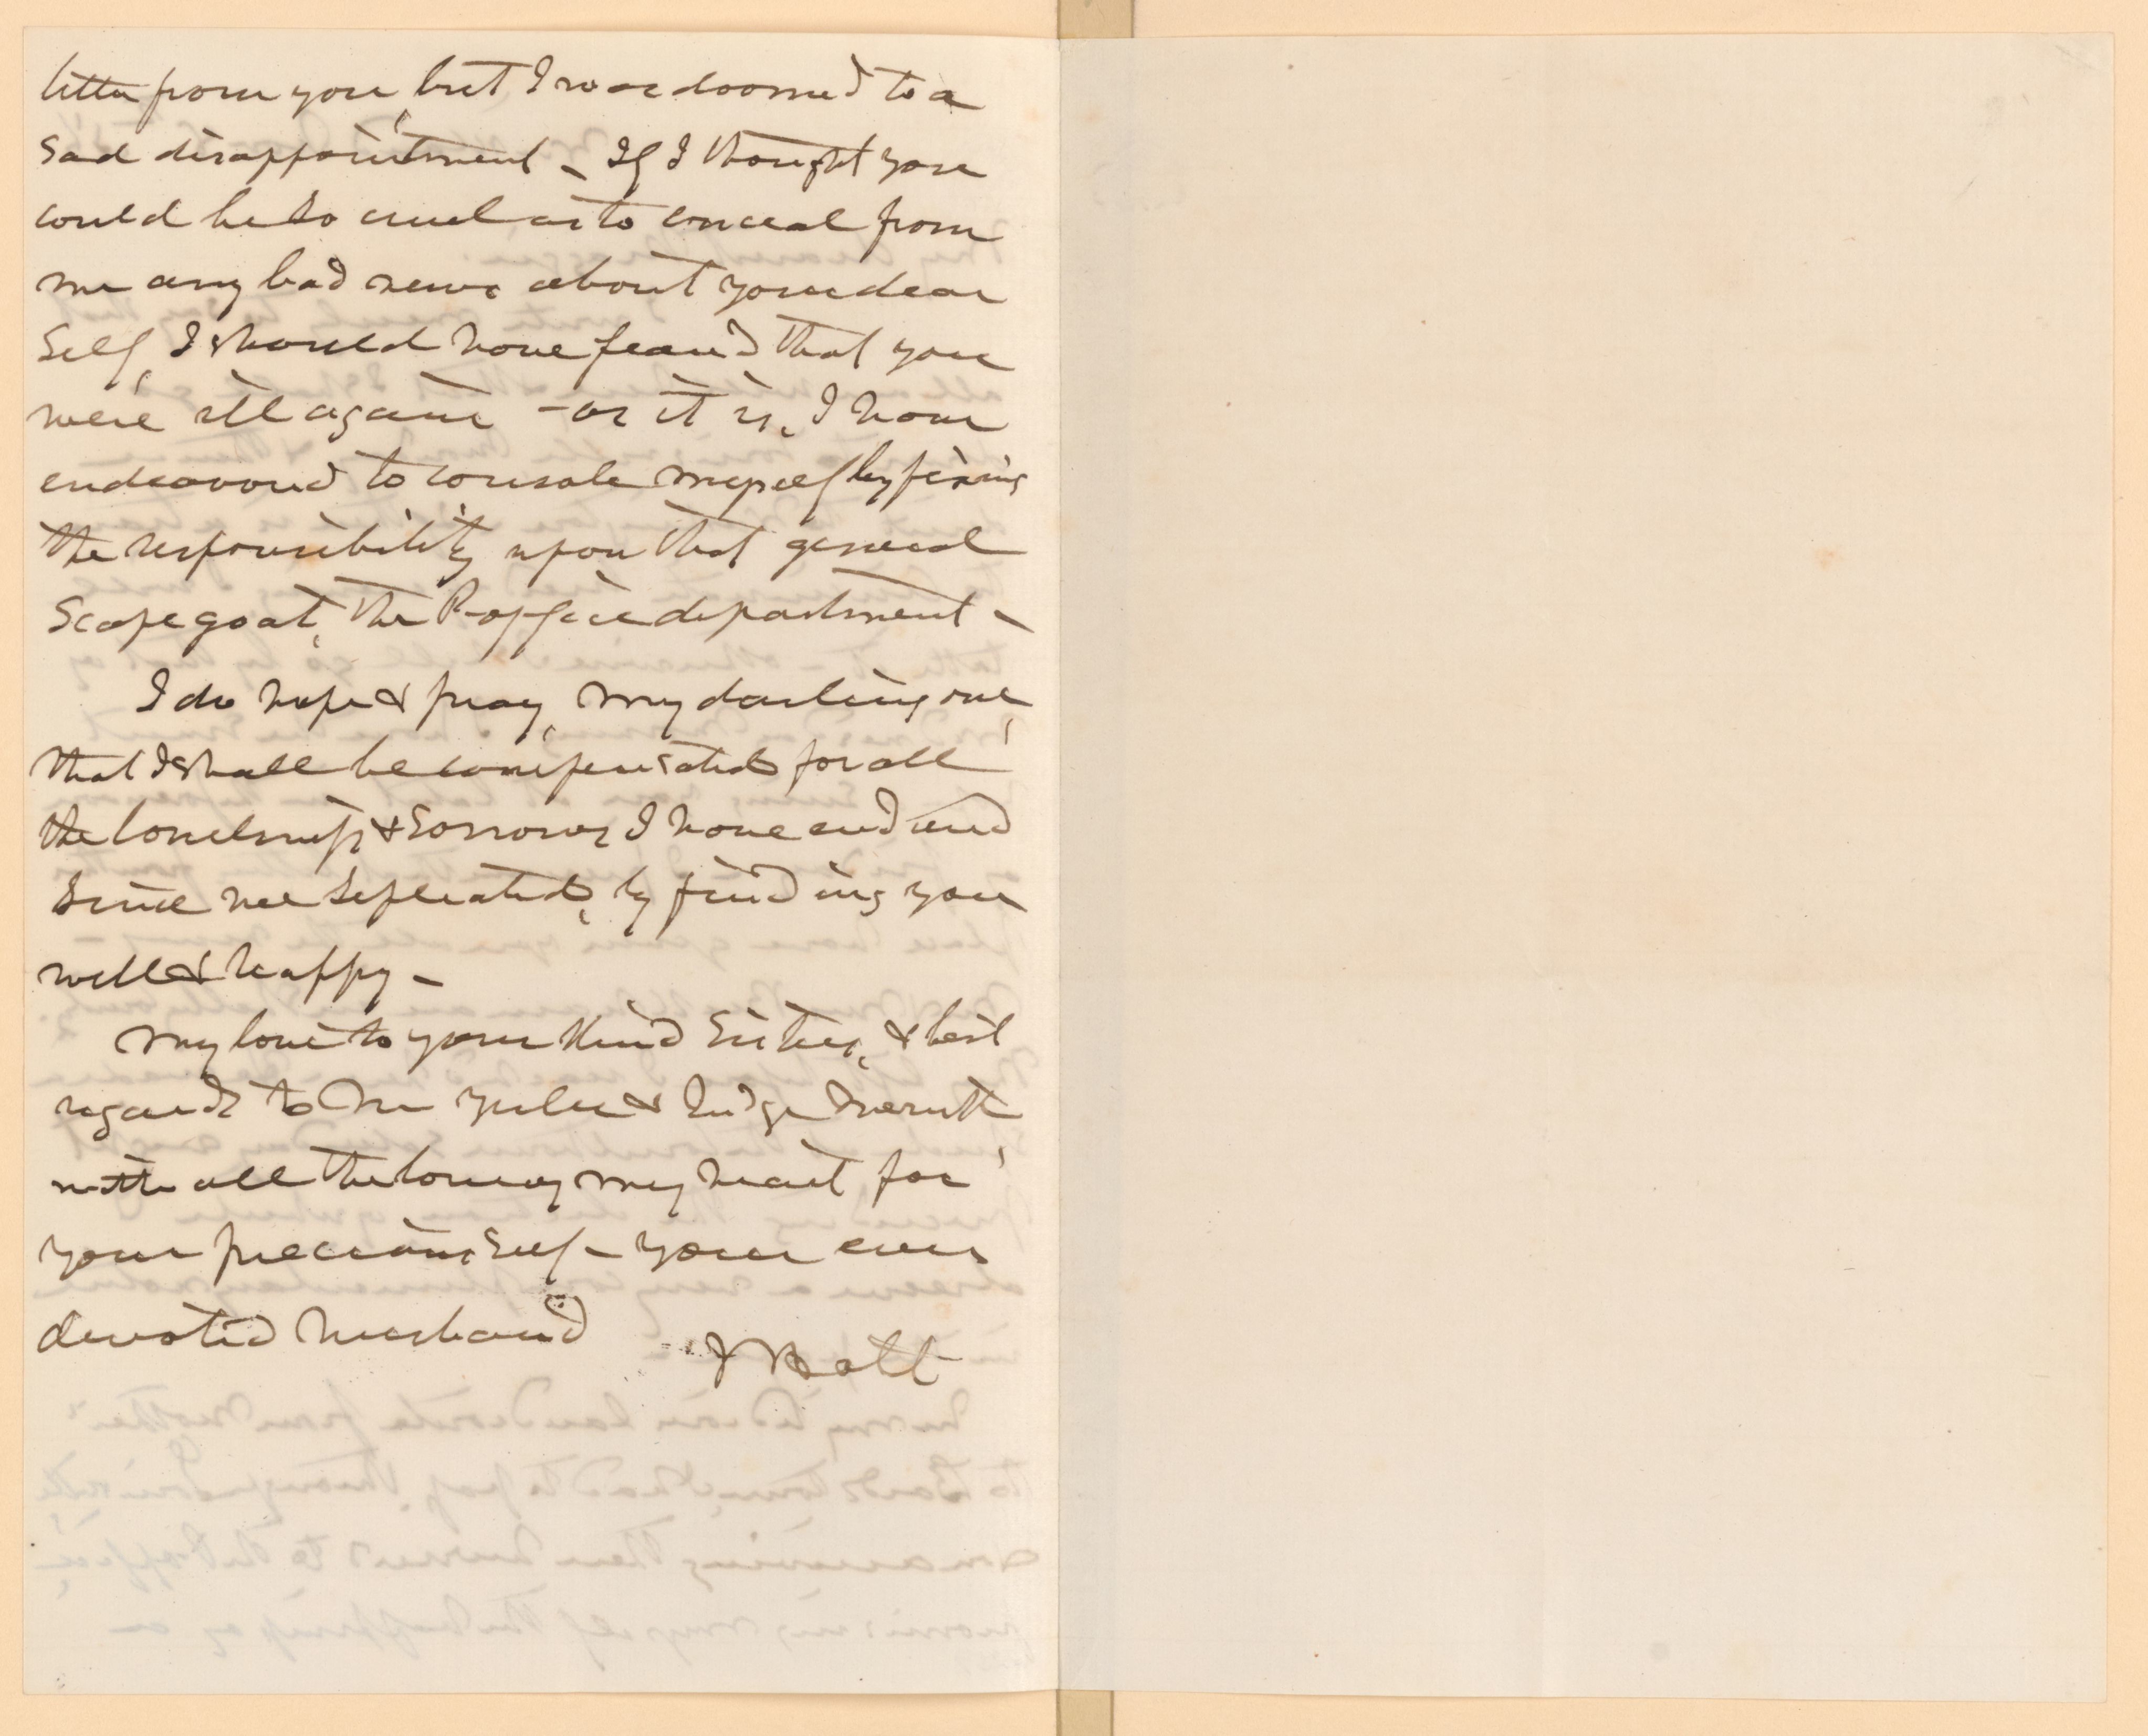 letter from you, but I was doomed to a
sad disappointment - If I thought you
could be so cruel as to conceal from
me any bad news about your dear
self, I should have feared that you
were ill again - as it is, I have
endeavored to console myself by fixing
the responsibility upon that general
scapegoat, the P. office department -
I do hope & pray, my darling one,
that I shall be compensated for all
the loneliness & sorrows I have endured
since we separated, by finding you
well & happy -
My love to your kind sister, & best
regards to Mr Yulee & Judge
with all the love of my heart for
your precious self - your ever
devoted husband
J Holt